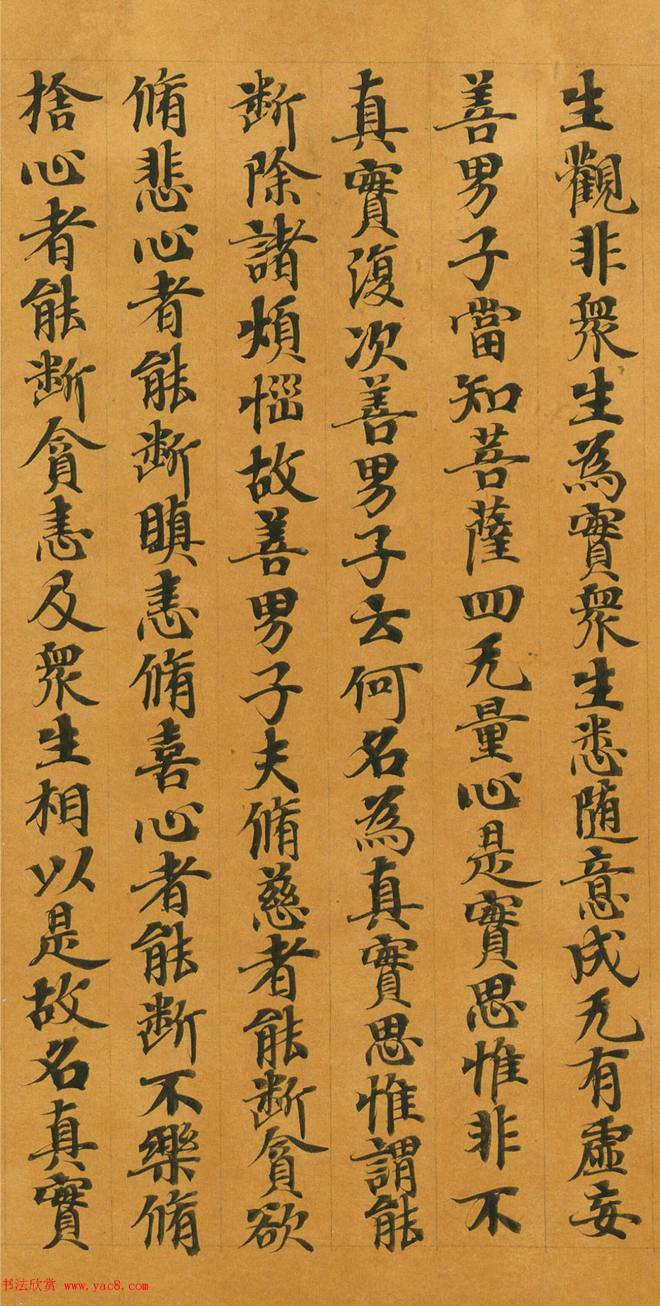 生觀非衆生為實衆生悉随意成无有虛妄
善男子當知菩薩四无量心是實思惟非不
真實復次善男子云何名為真實思惟謂能
断除諸煩惱故善男子夫脩慈者能断貪欲
脩悲心者能断瞋恚脩喜心者能断不樂脩
捨心者能断貪恚及衆生相以是故名真實
书法欣赏 www.yac8.com